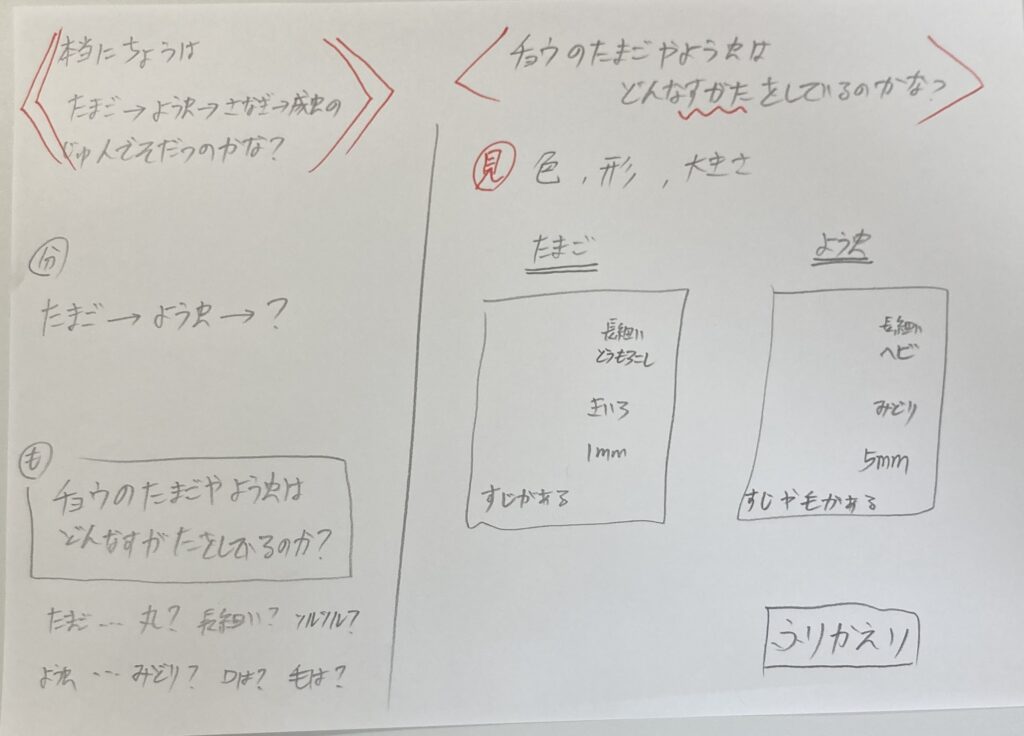 本当にちょうは
たまご→よう虫→さなぎ→成虫の
じゅんでそだつのかな?
分
たまご→よう虫→?
も
チョウのたまごやよう虫は
どんなすがたをしているのか?
たまご… 丸? 長細い? ツルツル?
よう虫… みどり? 口は? 毛は?
チョウのたまごやよう虫は
どんなすがたをしているのかな?
見 色,形,大きさ
たまご
長細い
とうもろこし
きいろ
1mm
すじがある
よう虫
長細い
ヘビ
みどり
5mm
すじや毛がある
ふりかえり